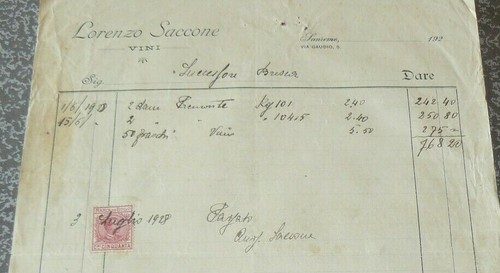 Lorenzo Saccone
VINI
Sanremo, 192
VIA GAUDIO, 5
Sig. Successori Dare
1/6/1928 2 Piemonte Kg 101 2.40 242 40
15/6/ 2 " " 104.5 2.40 250 80
50 fiaschi Vino 5.50 275 –
768 20
3 Luglio 1928 Pagato
Saccone
CINQUANTA